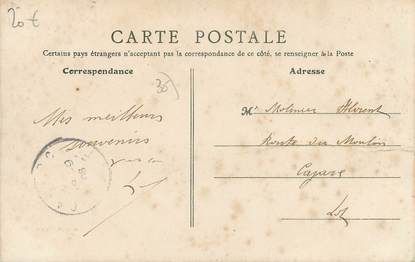 20€
CARTE POSTALE
Certains pays étrangers n'acceptant pas la correspondance de ce côté, se renseigner à la Poste
Correspondance
Adresse
35
Mes meilleurs
souvenirs
Mr Molinier Florent
Route du Moulin
Cajarc
Lot